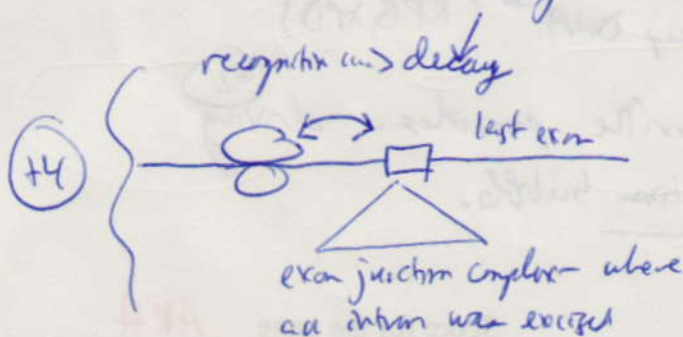 recognition => decay
last exon
+4
exon junction complex - where
an intron was excised